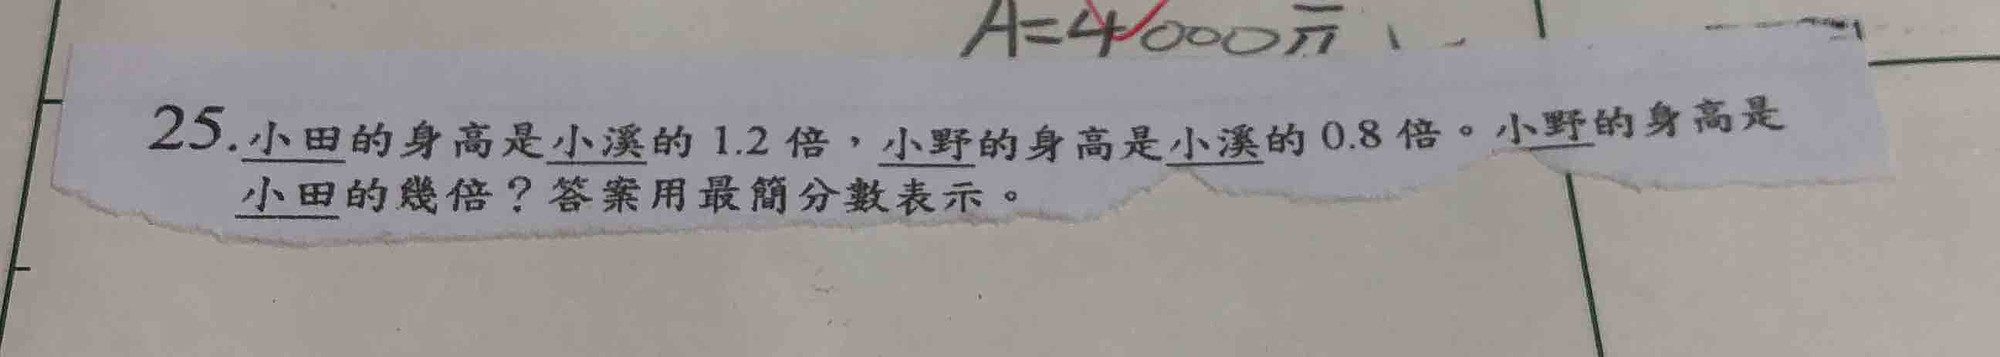 A=4000元
25.小田的身高是小溪的 1.2 倍，小野的身高是小溪的 0.8 倍。小野的身高是
小田的幾倍？答案用最簡分數表示。